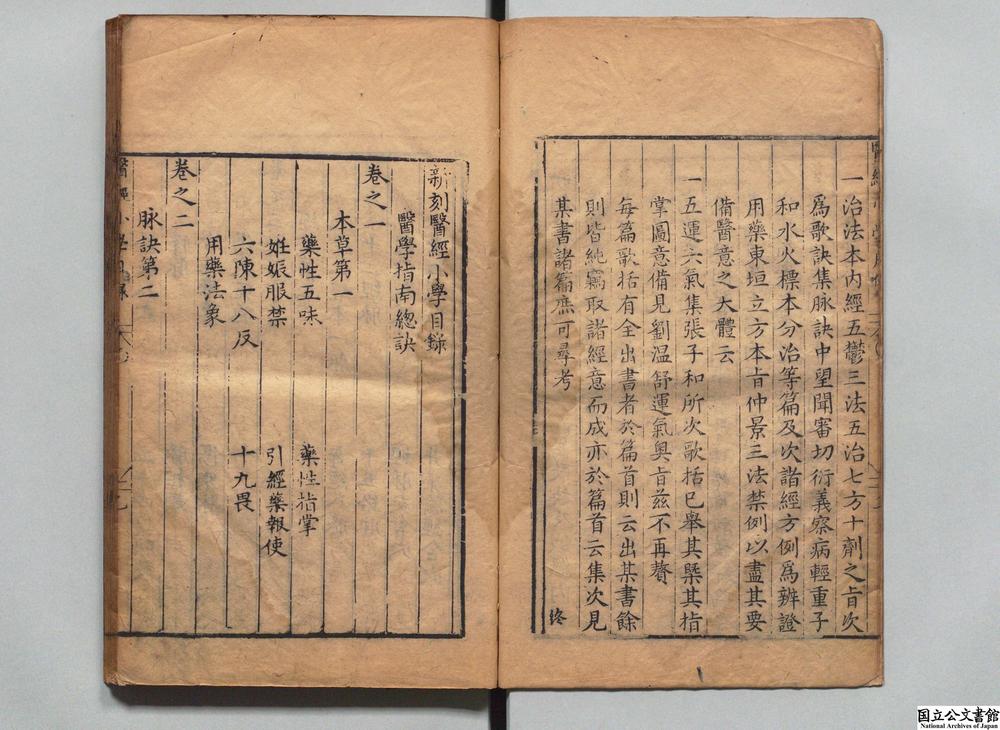 一治法本內經五鬱三法五治七方十劑之旨次
爲歌訣集脉訣中望聞審切衍義察病輕重子
和水火標本分治等篇及次諸經方例爲辨證
用藥東垣立方本旨仲景三法禁例以盡其要
備醫意之大體云
一五運六氣集張子和所次歌括已舉其槩其指
掌圖意備見劉温舒運氣奥旨兹不再贅
每篇歌括有全出書者於篇首則云出某書餘
則皆純竊取諸經意而成亦於篇首云集次見
某書諸篇庶可尋考
終
新刻醫經小學目錄
醫學指南總訣
卷之一
本草第一
藥性五味
藥性指掌
妊娠服禁
引經藥報使
六陳十八反
十九畏
用藥法象
卷之二
脉訣第二
醫經小學目錄
国立公文書館
National Archives of Japan